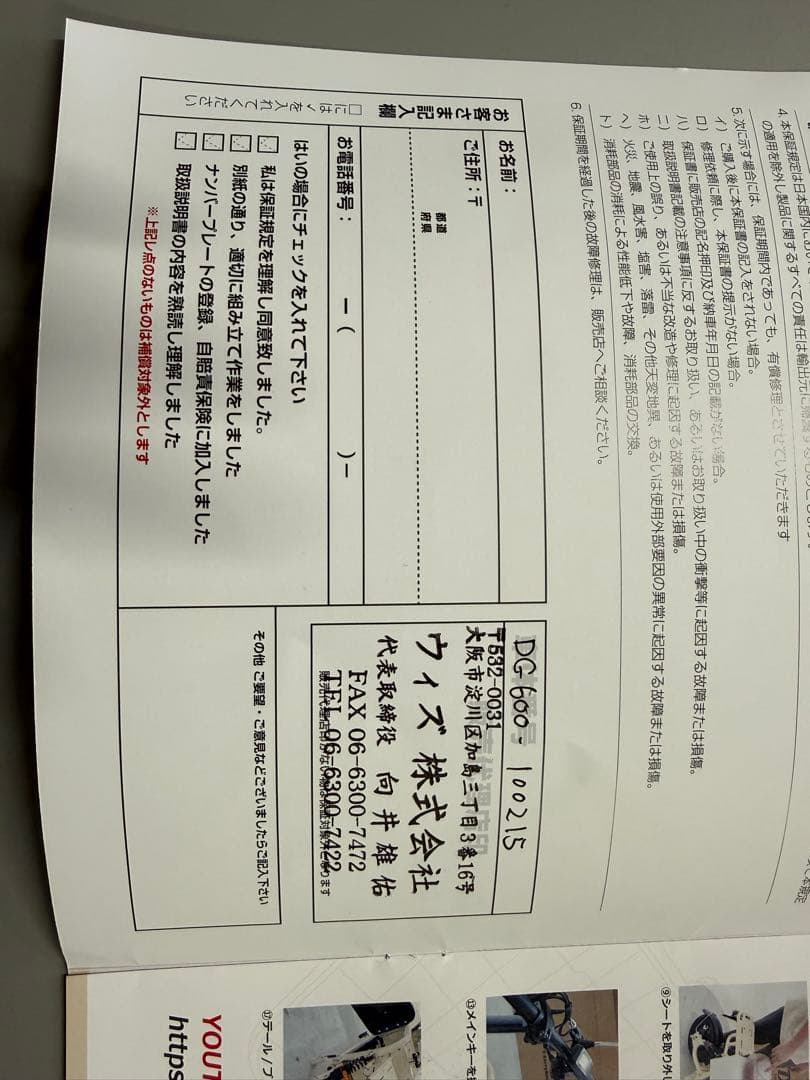 4. 本保証規定は日本国内におい
の適用を除外し製品に関するすべての責任は輸出元に帰属するものとし
5. 次に示す場合には、保証期間内であっても、有償修理とさせていただきます
イ）ご購入後に本保証書の記入をされない場合。
ロ）修理依頼に際し、本保証書の提示がない場合。
ハ）保証書に販売店の記名押印及び納車年月日の記載がない場合。
ニ）取扱説明書記載の注意事項に反するお取り扱い、あるいはお取り扱い中の衝撃等に起因する故障または損傷。
ホ）ご使用上の誤り、あるいは不当な改造や修理に起因する故障または損傷。
ヘ）火災、地震、風水害、塩害、落雷、その他天変地異、あるいは使用外部要因の異常に起因する故障または損傷。
ト）消耗部品の消耗による性能低下や故障、消耗部品の交換。
6. 保証期間を経過した後の故障修理は、販売店へご相談ください。
お客さま記入欄
□には✓を入れてください
お名前：
ご住所：〒
都道
府県
お電話番号： ー（ ）ー
はいの場合にチェックを入れて下さい
私は保証規定を理解し同意致しました。
別紙の通り、適切に組み立て作業をしました
ナンバープレートの登録、自賠責保険に加入しました
取扱説明書の内容を熟読し理解しました
※上記レ点のないものは補償対象外とします
DG600-100215
〒532-0031
大阪市淀川区加島三丁目3番16号
ウィズ株式会社
代表取締役 向井雄佑
FAX 06-6300-7472
TEL 06-6300-7422
その他 ご要望・ご意見などございましたらご記入下さい
⑨シートを取り外し
⑬メインキーを
⑰テール／ブ
YOUT
https